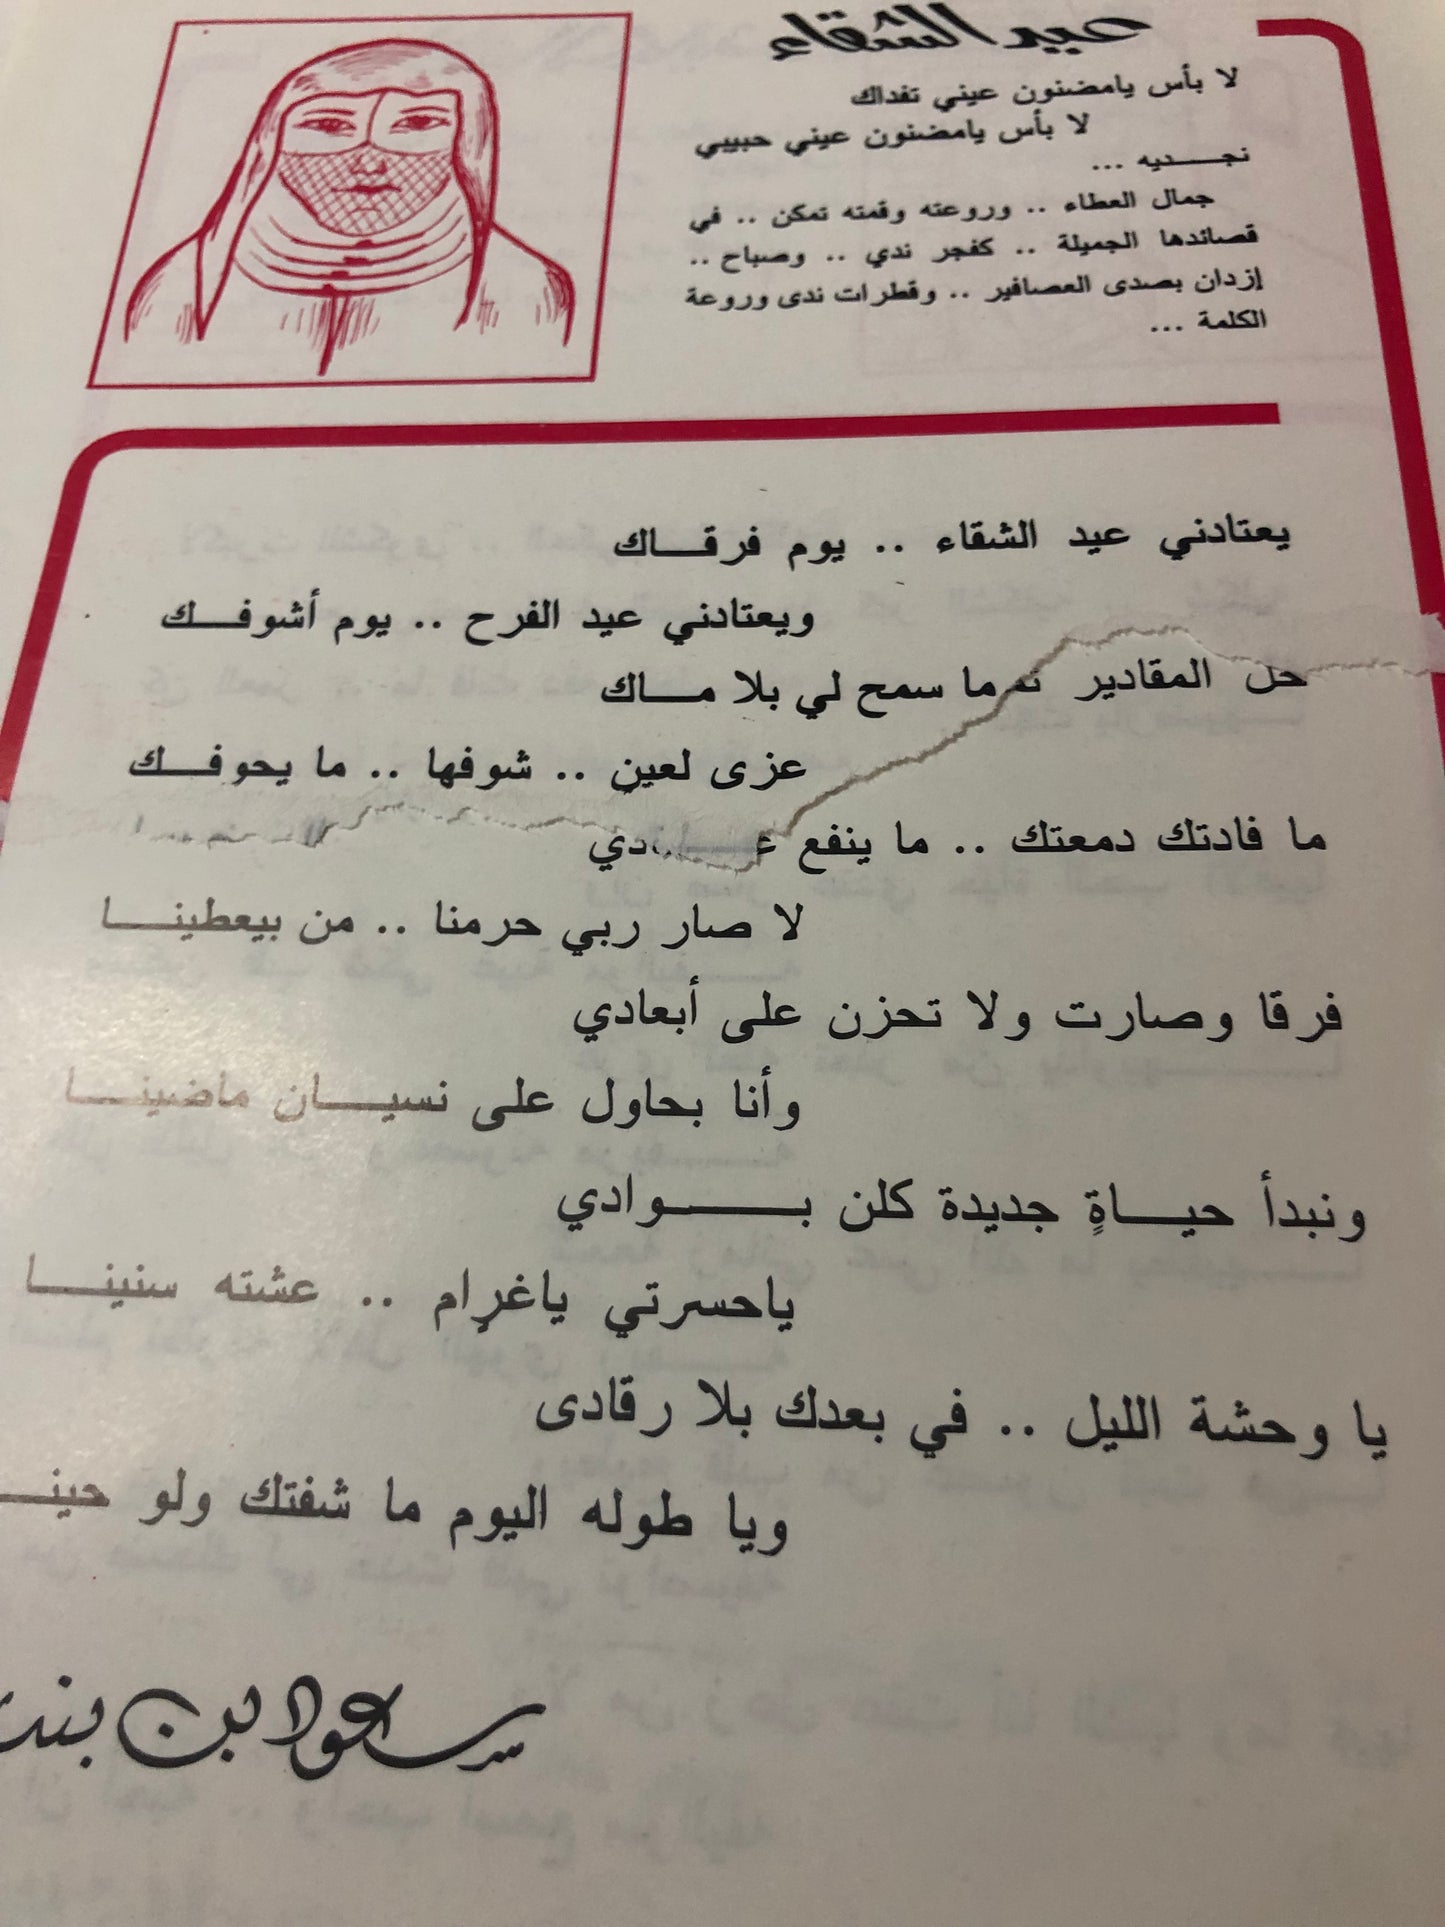 عيد الشقاء
لا بأس يامضنون عيني تفداك
لا بأس يامضنون عيني حبيبي
نجـــديه ...
جمال العطاء .. وروعته وقمته تمكن .. في
قصائدها الجميلة .. كفجر ندي .. وصباح ..
إزدان بصدى العصافير .. وقطرات ندى وروعة
الكلمة ...
يعتادني عيد الشقاء .. يوم فرقـــاك
ويعتادني عيد الفرح .. يوم أشوفـــك
حل المقادير ما سمح لي بلا مـــاك
عزى لعينٍ .. شوفها .. ما يحوفـــك
ما فادتك دمعتك .. ما ينفع
لا صار ربي حرمنا .. من بيعطينـــا
فرقا وصارت ولا تحزن على أبعادي
وأنا بحاول على نسيـــان ماضينـــا
ونبدأ حيـــاةٍ جديدة كلن بـــوادي
ياحسرتي ياغرامٍ .. عشته سنينـــا
يا وحشة الليل .. في بعدك بلا رقادى
ويا طوله اليوم ما شفتك ولو
سعود بن